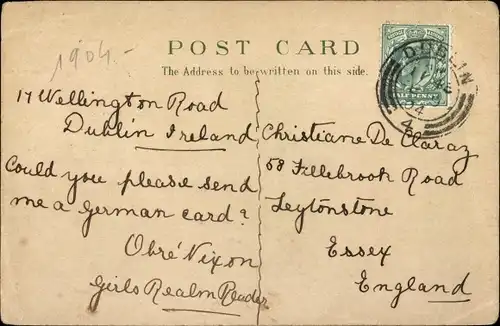 1904.-
POST CARD
The Address to be written on this side.
HALFPENNY
DUBLIN
04
17 Wellington Road
Dublin Ireland
Could you please send
me a german card?
Obré Nixon
Girls Realm Reader
Christiane De Claraz
58 Fillebrook Road
Leytonstone
Essex
England